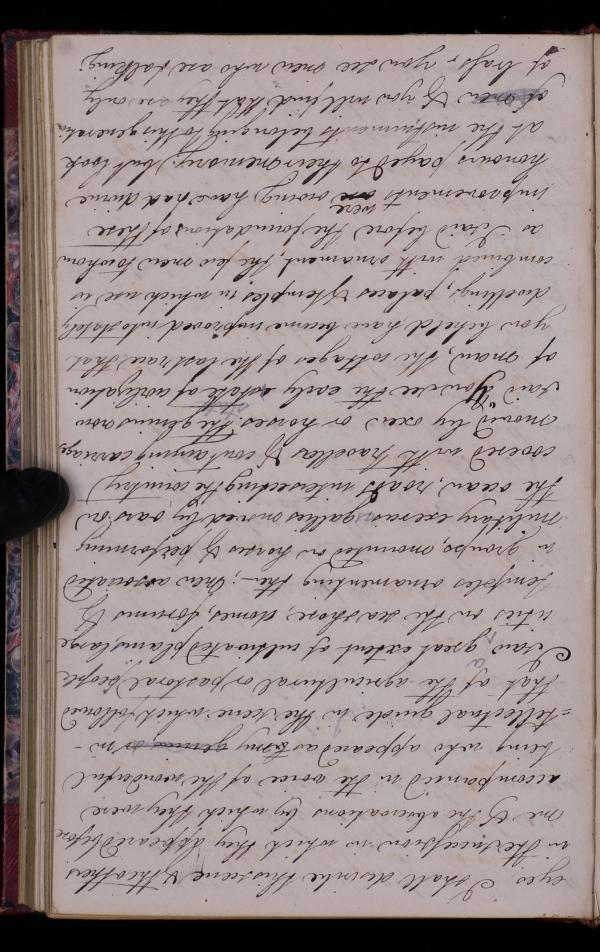 eyes. I shall describe this scene & the others
in the succession in which they appeared before
me & the observations by which they were
accompanied in the voice of the wonderful
being who appeared as my genius as in -
= tellectual guide in the scene which followed
that of the agricultural or pastoral people
I saw a great extent of cultivated plains, large
cities on the sea shore, domes, forums &
temples ornamenting them; men associated
in groups, mounted on horses & performing
military exercises, galleys moved by oars on
the ocean, roads intersecting the country
covered with travellers & containing carriages
moved by oxen or horses. The genius now
said "You see the early state of civilization
of man, the cottages of the last race that
you beheld have become improved into stately
dwellings, palaces & temples in which use is
combined with ornament, the few men to whom
as I said before the foundations of these
improvements are were owing have had divine
honours payed to their memory; but look
at the instruments belonging to this generation
of men & you will find that they are only
of brass, you see men who are talking